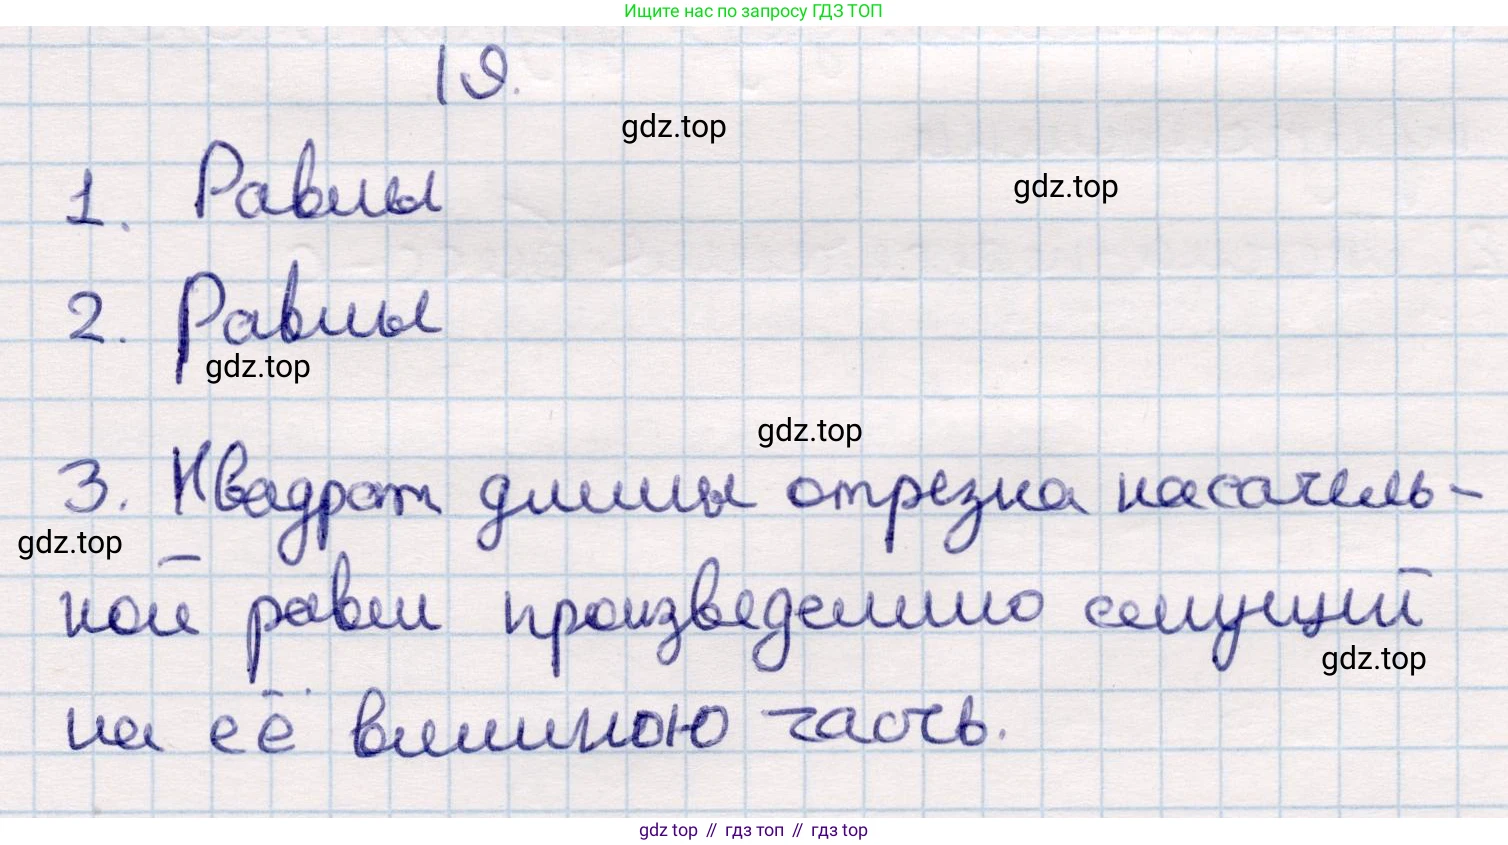 Ищите нас по запросу ГДЗ ТОП
19.
gdz.top
1. Равны
gdz.top
2. Равны
gdz.top
gdz.top
3. Квадрат длины отрезка касатель-
gdz.top
ной равен произведению секущий
gdz.top
на её внешнюю часть.
gdz top // гдз топ // гдз top